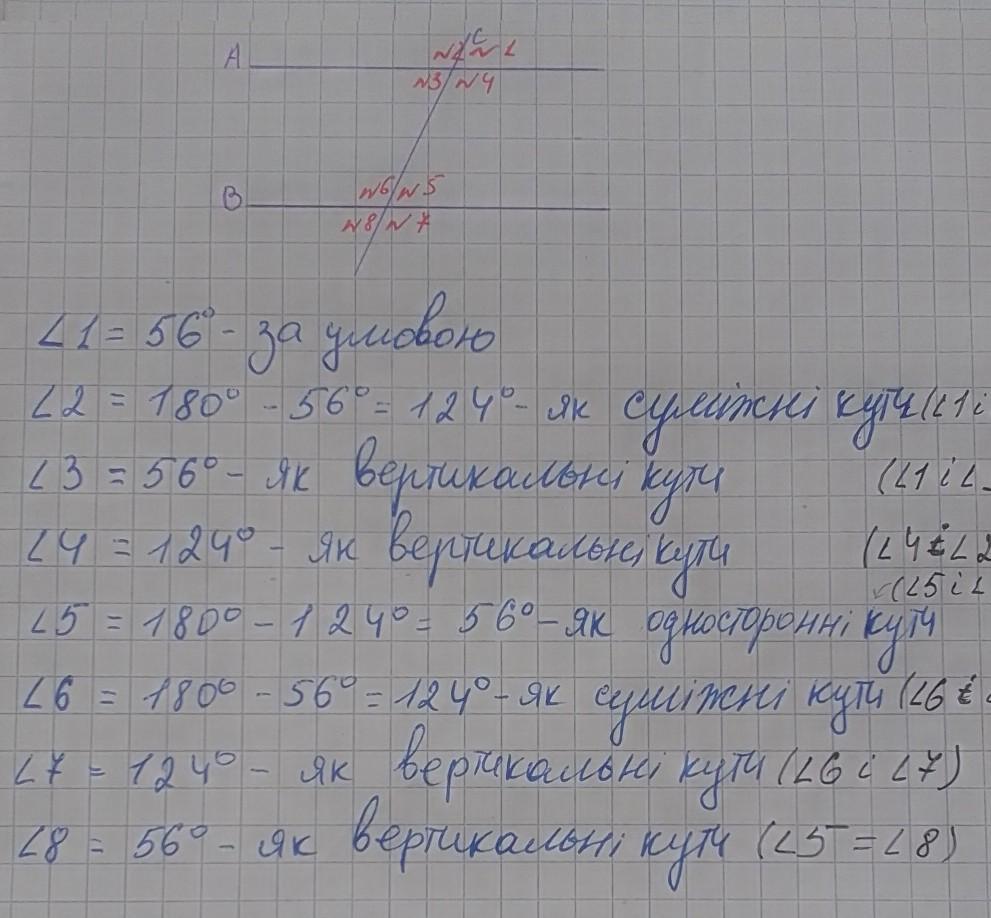 C
A №2 №1
№3 №4
B №6 №5
№8 №7
∠1 = 56° - за умовою
∠2 = 180° - 56° = 124° - як суміжні кути (∠1 і
∠3 = 56° - як вертикальні кути (∠1 і ∠
∠4 = 124° - як вертикальні кути (∠4 і ∠2
(∠5 і ∠
∠5 = 180° - 124° = 56° - як односторонні кути
∠6 = 180° - 56° = 124° - як суміжні кути (∠6 і
∠7 = 124° - як вертикальні кути (∠6 і ∠7)
∠8 = 56° - як вертикальні кути (∠5 = ∠8)